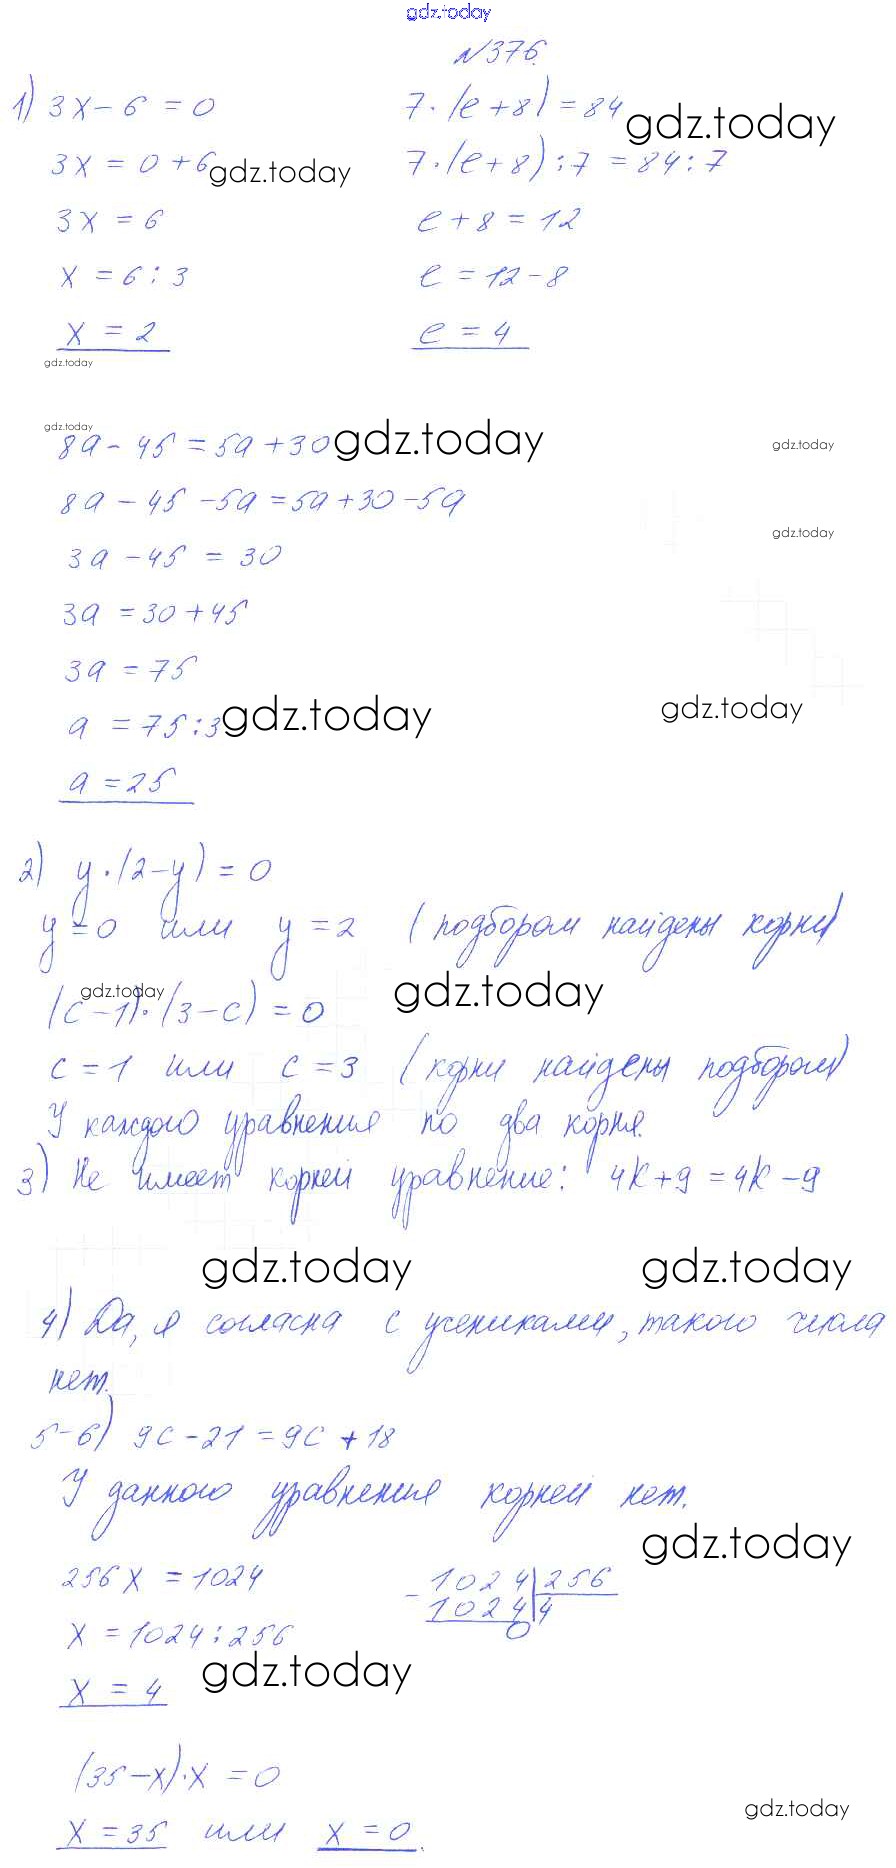 gdz.today
№376.
1) 3x - 6 = 0
3x = 0 + 6
3x = 6
x = 6 : 3
x = 2
7·(e + 8) = 84
7·(e + 8) : 7 = 84 : 7
e + 8 = 12
e = 12 - 8
e = 4
gdz.today
gdz.today
gdz.today
gdz.today
8a - 45 = 5a + 30
8a - 45 - 5a = 5a + 30 - 5a
3a - 45 = 30
3a = 30 + 45
3a = 75
a = 75 : 3
a = 25
gdz.today
gdz.today
gdz.today
gdz.today
gdz.today
gdz.today
2) y·(2 - y) = 0
y = 0 или y = 2 (подбором найдены корни)
(c - 1)·(3 - c) = 0
gdz.today
gdz.today
c = 1 или c = 3 (корни найдены подбором)
У каждого уравнения по два корня.
3) Не имеет корней уравнение: 4k + 9 = 4k - 9
gdz.today
gdz.today
4) Да, я согласна с учениками, такого числа
нет.
5-6) 9c - 21 = 9c + 18
У данного уравнения корней нет.
gdz.today
256x = 1024
x = 1024 : 256
x = 4
- 1024 | 256
1024 | 4
0
gdz.today
(35 - x)·x = 0
x = 35 или x = 0.
gdz.today